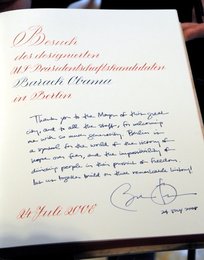 Besuch
des designierten
US Präsidentschaftskandidaten
Barack Obama
in Berlin
Thank you to the Mayor of this great
city, and to all the staff, for welcoming
me with so much generosity. Berlin is
a symbol for the world of the victory of
hope over fear, and the impossibility of
dividing people in their pursuit of freedom.
Let us together build on that remarkable history!
24 July 2008
24. Juli 2008